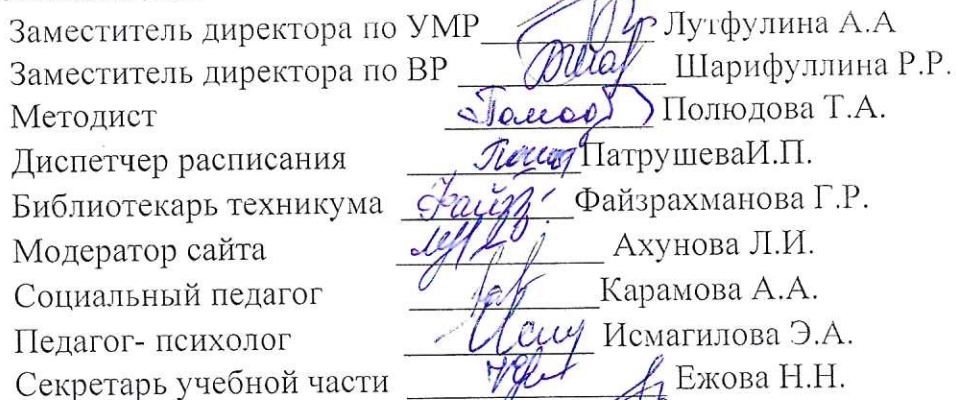 Заместитель директора по УМР Лутфулина А.А
Заместитель директора по ВР Шарифуллина Р.Р.
Методист Полюдова Т.А.
Диспетчер расписания ПатрушеваИ.П.
Библиотекарь техникума Файзрахманова Г.Р.
Модератор сайта Ахунова Л.И.
Социальный педагог Карамова А.А.
Педагог- психолог Исмагилова Э.А.
Секретарь учебной части Ежова Н.Н.